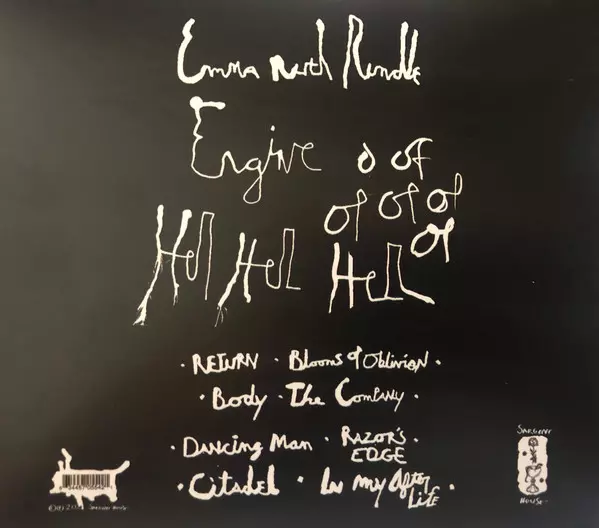 Emma Ruth Rundle
Engine o of
of of of
Hell Hell Hell of
· RETURN · Blooms of Oblivion ·
· Body · The Company ·
· Dancing Man · RAZOR'S EDGE ·
· Citadel · In my After Life ·
SARGENT
HOUSE